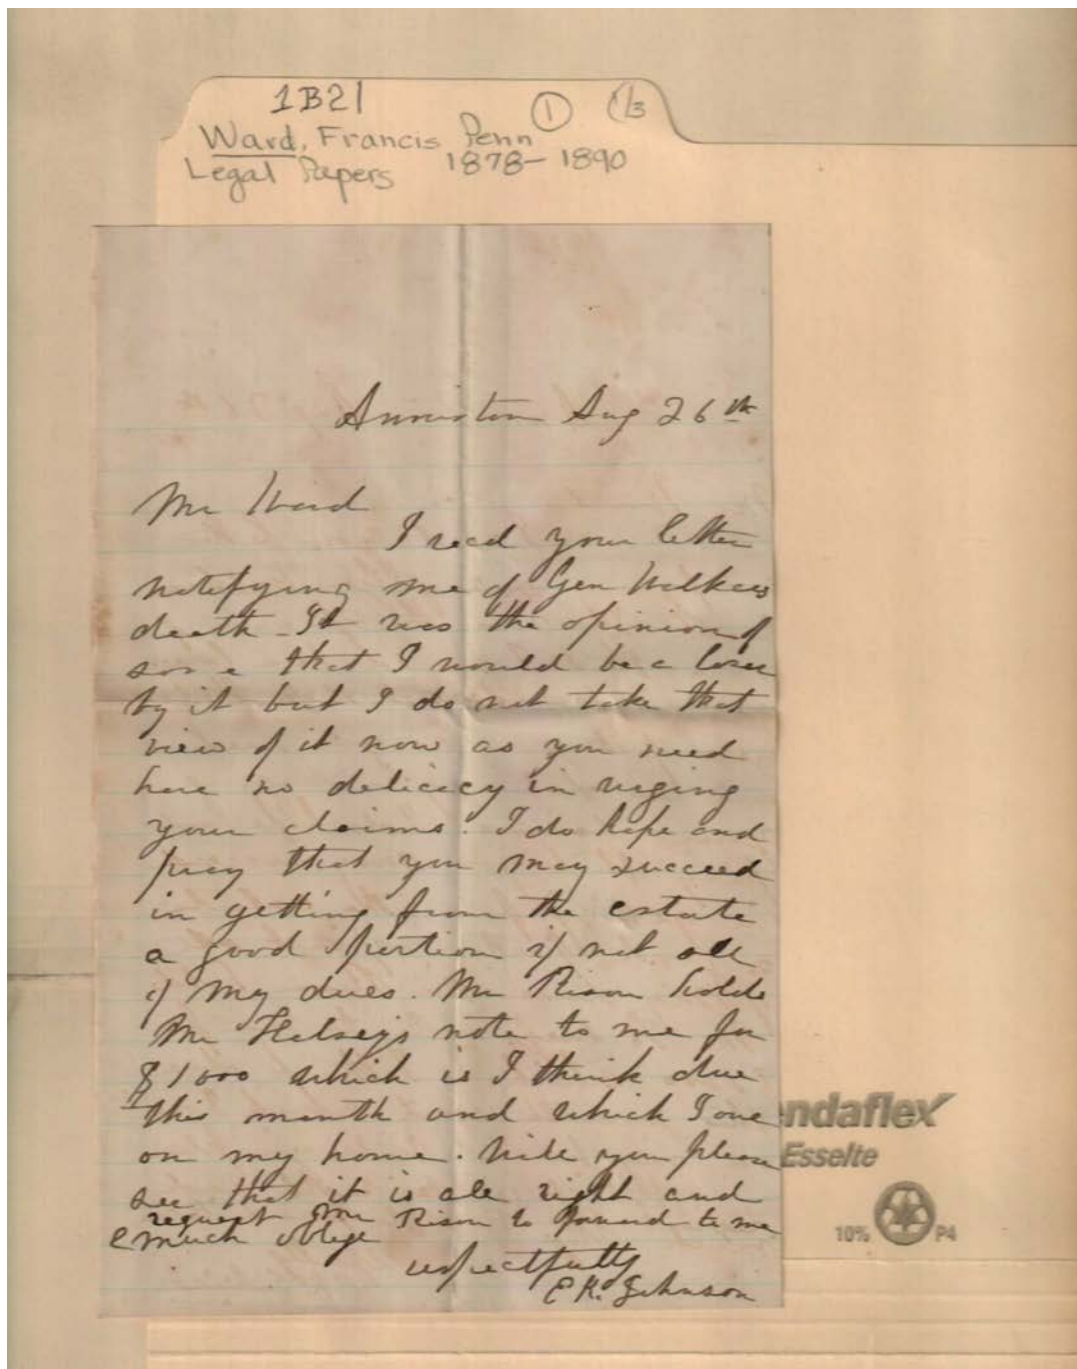 1B21 ① 1/3
Ward, Francis Penn
Legal Papers 1878-1890
Anniston Aug 26th
Mr Ward
I recd your letter
notifying me of Gen Walkers
death - It was the opinion of
some that I would be a loser
by it but I do not take that
view of it now as you need
have no delicacy in urging
your claims. I do hope and
pray that you may succeed
in getting from the estate
a good portion if not all
of my dues. Mr Rison holds
Mr Halsey's note to me for
$1000 which is I think due
this month and which I owe
on my home. Will you please
see that it is all right and
request Mr Rison to forward to me
& much oblige
respectfully
E K Johnson
ndaflex
Esselte
10% P4